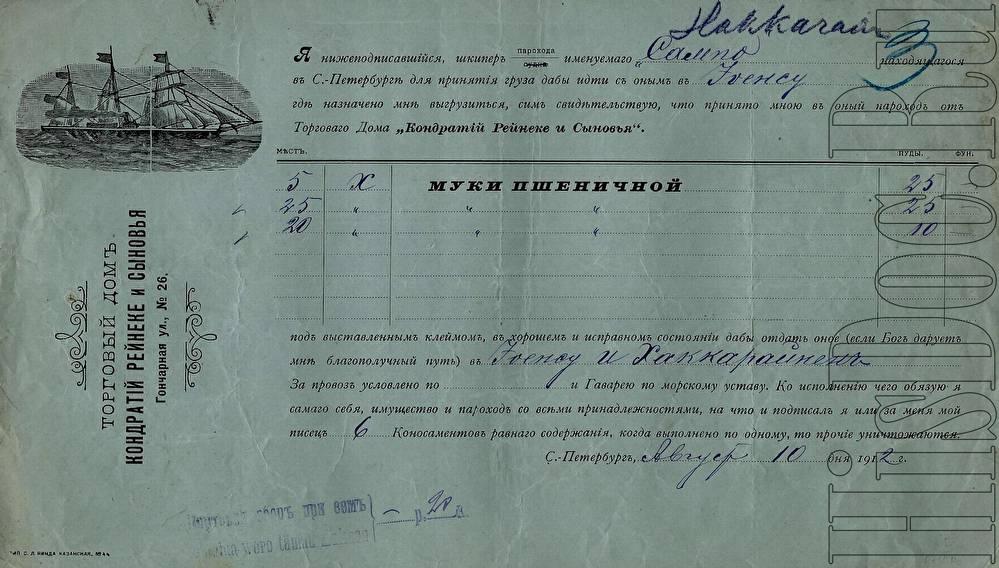 Hakkarain
3
Я нижеподписавшійся, шкиперъ парохода судна именуемаго „Сампо находящагося
въ С.-Петербургѣ для принятія груза дабы идти съ онымъ въ Іоенсу
гдѣ назначено мнѣ выгрузиться, симъ свидѣтельствую, что принято мною въ оный пароходъ отъ
Торговаго Дома „Кондратій Рейнеке и Сыновья“.
МѢСТЪ. ПУДЫ. ФУН.
5 X МУКИ ПШЕНИЧНОЙ 25
25 „ „ „ 25
20 „ „ „ 10
подъ выставленнымъ клеймомъ, въ хорошемъ и исправномъ состояніи дабы отдать оное (если Богъ даруетъ
мнѣ благополучный путь) въ Іоенсу и Хаккарайненъ
За провозъ условлено по и Гаварею по морскому уставу. Ко исполненію чего обязую я
самаго себя, имущество и пароходъ со всѣми принадлежностями, на что и подписалъ я или за меня мой
писецъ 6 Коносаментовъ равнаго содержанія, когда выполнено по одному, то прочіе уничтожаются.
С.-Петербургъ, Август 10 дня 1912 г.
ТОРГОВЫЙ ДОМЪ
КОНДРАТІЙ РЕЙНЕКЕ И СЫНОВЬЯ
Гончарная ул., № 26.
сборъ при
— р. 20 к.
ТИП. С. Л. КИНДА КАЗАНСКАЯ, № 44
HISDOC.RU